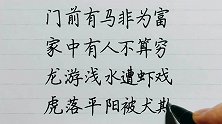 门前有马非为富
家中有人不算穷
龙游浅水遭虾戏
虎落平阳被犬欺